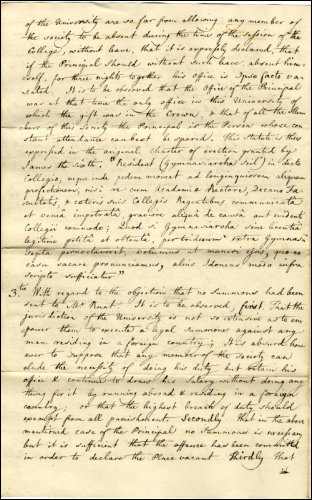 of the University are so far from allowing any member of
the society to be absent during the time of the session of the
College, without leave, that it is expressly declared, that
if the Principal should without such leave, absent him=
self, for three nights together his office is Ipso facto va=
cated. It is to be observed that the Office of the Principal
was at that time the only office in this University of
which the gift was in the Crown, & that of all the Mem
bers of this Society the Principal is the Person whose con
stant attendance can best be spared. This statute is thus
expressed in the original charter of erection granted by
James the sixth: "Resideat (Gymnasiarcha Scil) in dicto
Collegio, neque inde pedem moveat ad longinquiorem aliquam
profectionem, nisi re cum Academiæ Rectore, Decano Fa
cultatis, & cæteris suis Collegii Regentibus communicata
et venia impetrata, graviore aliqua de causa aut evidenti
Collegii comodo; Quod si Gymnasiarcha sine licentia
legitime petita et obtenta, per triduum extra Gymnasii
Septa pernoctaverit, volumus ut munus ejus, quo eo
casu vacare pronunciamus, alius Idoneus modo infra
scripto sufficiatur"
3tio With regard to the objection that no summons had been
sent to Mr Ruat. It is to be observed, first, That the
jurisdiction of the University is not so extensive as to em
power them to execute a legal summons against any
man residing in a foreign country; It is absurd how
ever to suppose that any member of the Society can
elude the necessity of doing his duty but retain his
office & continue to draw his Salary without doing any
thing for it by running abroad & residing in a foreign
country; or that the highest breach of duty should
exempt from all punishment. Secondly That in the above
mentioned case of the Principal no summons is necessary
but it is sufficient that the offence has been committed
in order to declare the Place vacant Thirdly That